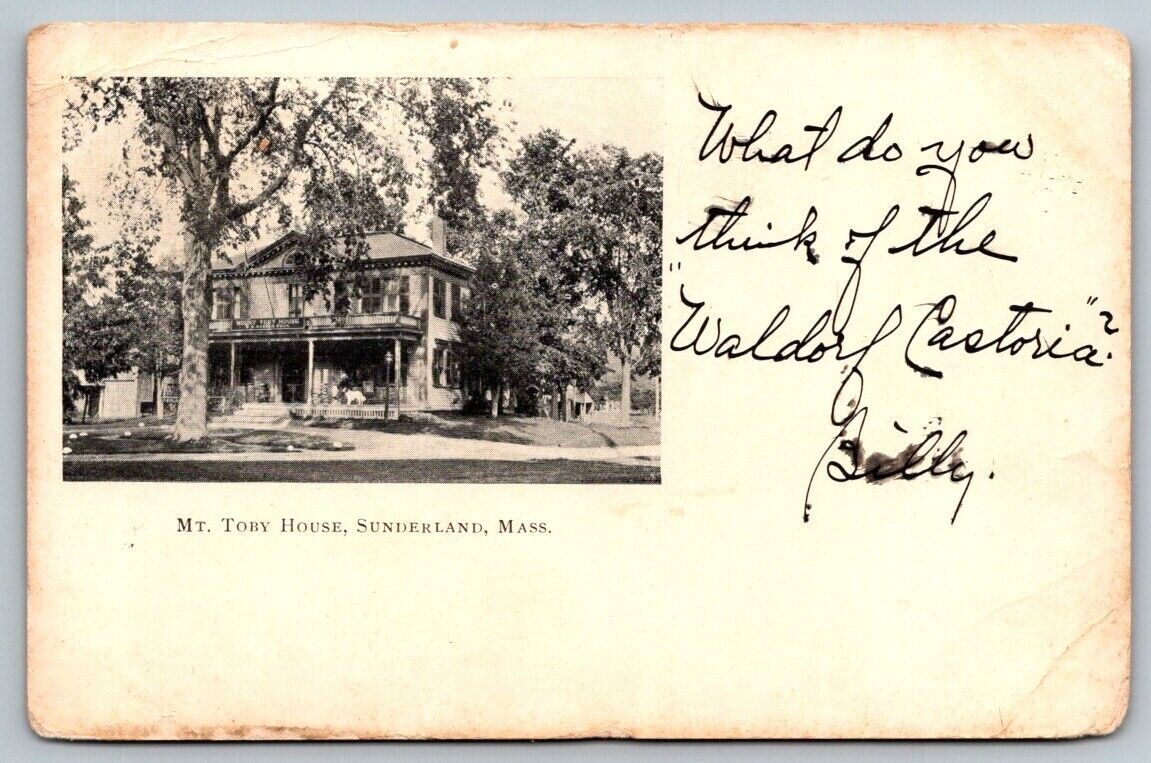 MOUNT TOBY HOUSE
Mt. Toby House, Sunderland, Mass.
What do you
think of the
"Waldorf Castoria"?
Billy.